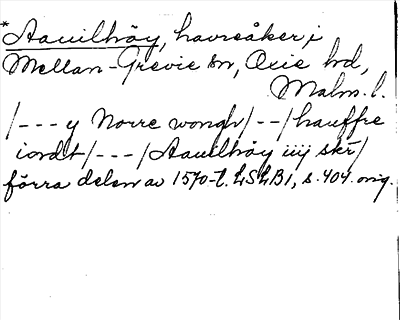 *Aauilhöy, havreåker i
Mellan-Grevie sn, Oxie hd,
Malm. l.
/--- y Norre wongh/--/hauffre
iordt/---/Aauilhöy iiij skr/
förra delen av 1570-t. LSLB1, s. 404. orig.